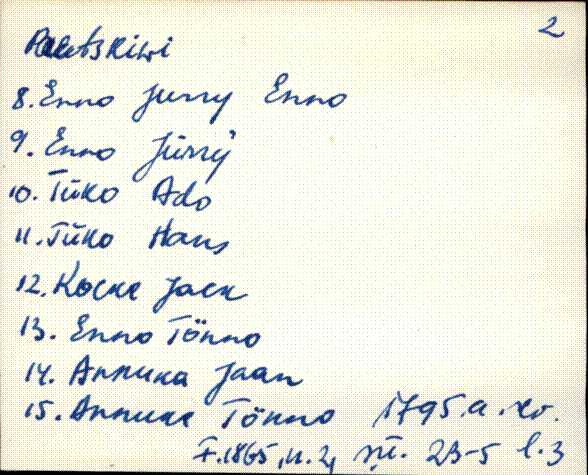 2
8. Enno Jurry Enno
9. Enno Jürry
10. Tüko Ado
11. Tüko Hans
12. Kocke Jack
13. Enno Tönno
14. Annuka Jaan
15. Annuka Tönno 1795.a. rev.
F.1865, n. 2, sü. 23-5 l.3